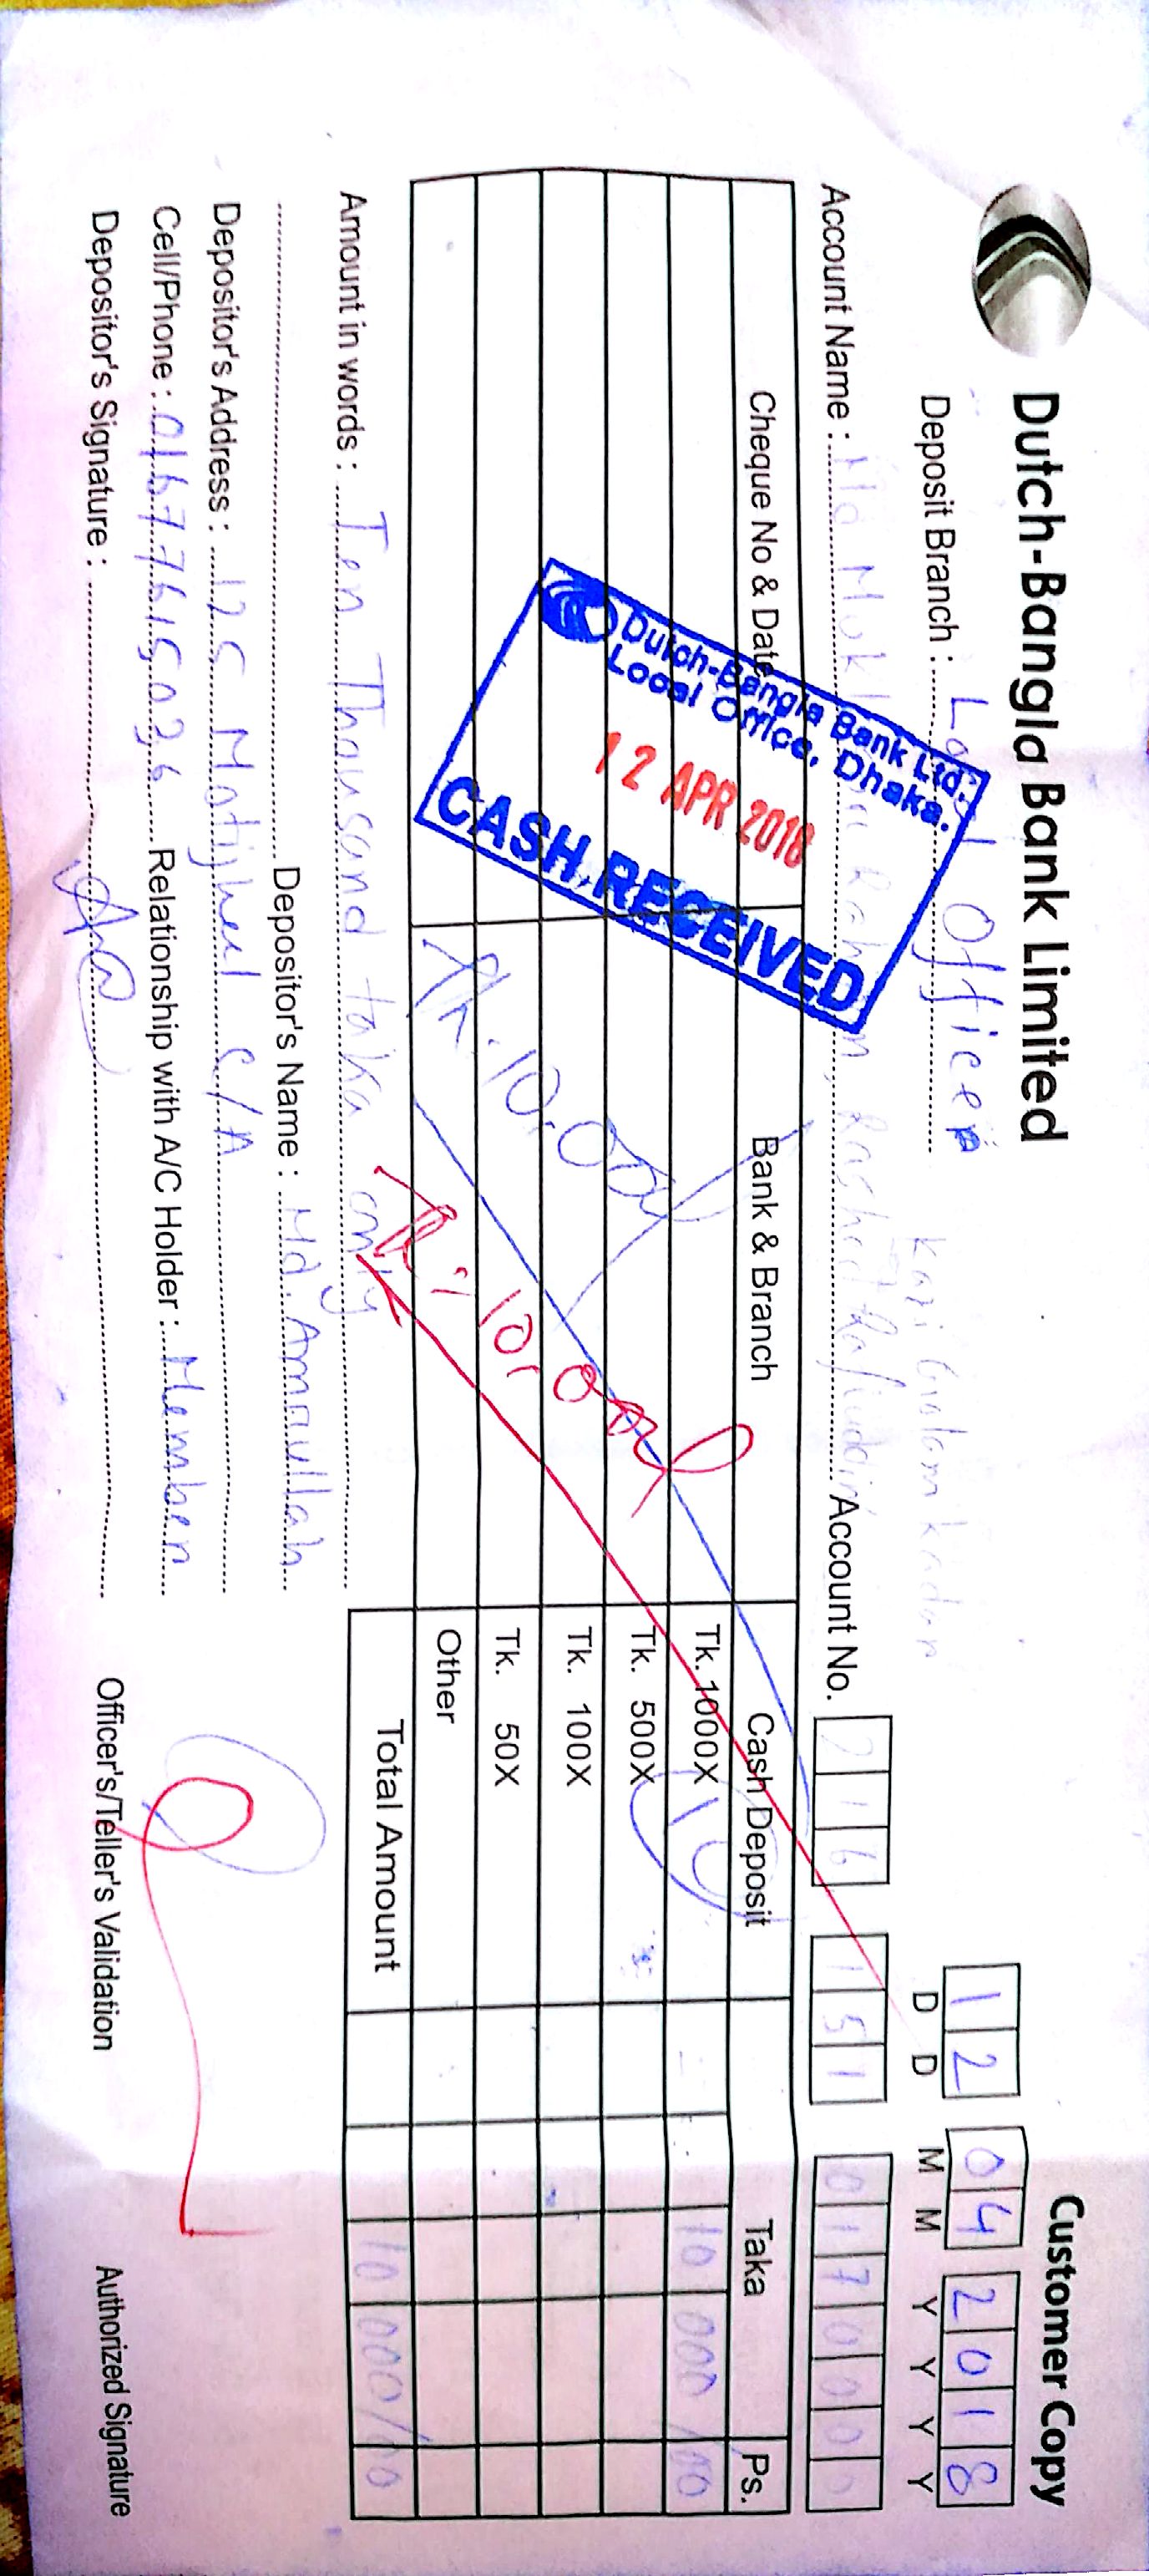 Dutch-Bangla Bank Limited
Customer Copy
Deposit Branch : Local Office
12 04 2018
D D M M Y Y Y Y
Kazi Golam Kadar
Account Name : Md Rashed Rafiuddin
Account No. 216 151 0170000
Cheque No & Date Bank & Branch Cash Deposit Taka Ps.
Tk. 1000X 10 10 000 /00
Tk. 500X
Tk. 100X
Tk. 50X
Other
Total Amount 10 000/00
Dutch-Bangla Bank Ltd.
Local Office, Dhaka.
12 APR 2018
CASH RECEIVED
Amount in words : Ten Thousand taka only
Depositor's Name : Md. Amanullah
Depositor's Address : 125 Motijheel C/A
Cell/Phone : 01677615036 Relationship with A/C Holder : Member
Depositor's Signature :
Officer's/Teller's Validation
Authorized Signature